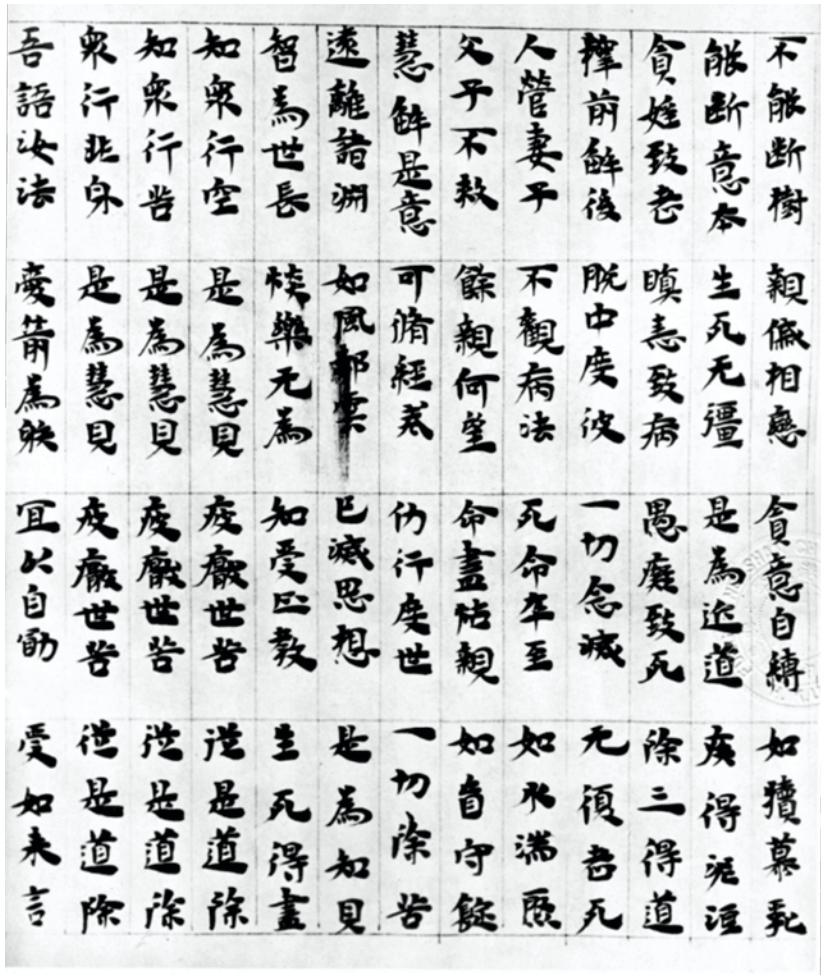 不能斷樹 親傶相戀 貪意自縛 如犢慕乳
能斷意本 生死无彊 是為近道 疾得泥洹
貪婬致老 瞋恚致病 愚癡致死 除三得道
釋前解後 脫中度彼 一切念滅 无復老死
人營妻子 不觀病法 死命卒至 如水湍
父子不救 餘親何望 命盡怙親 如盲守錠
慧解是意 可脩經戒 仂行度世 一切除苦
遠離諸淵 如風却雲 已滅思想 是為知見
智為世長 惔樂无為 知受正教 生死得盡
知眾行空 是為慧見 疲厭世苦 從是道除
知眾行苦 是為慧見 疲厭世苦 從是道除
眾行非身 是為慧見 疲厭世苦 從是道除
吾語汝法 愛箭為射 宜以自勖 受如來言